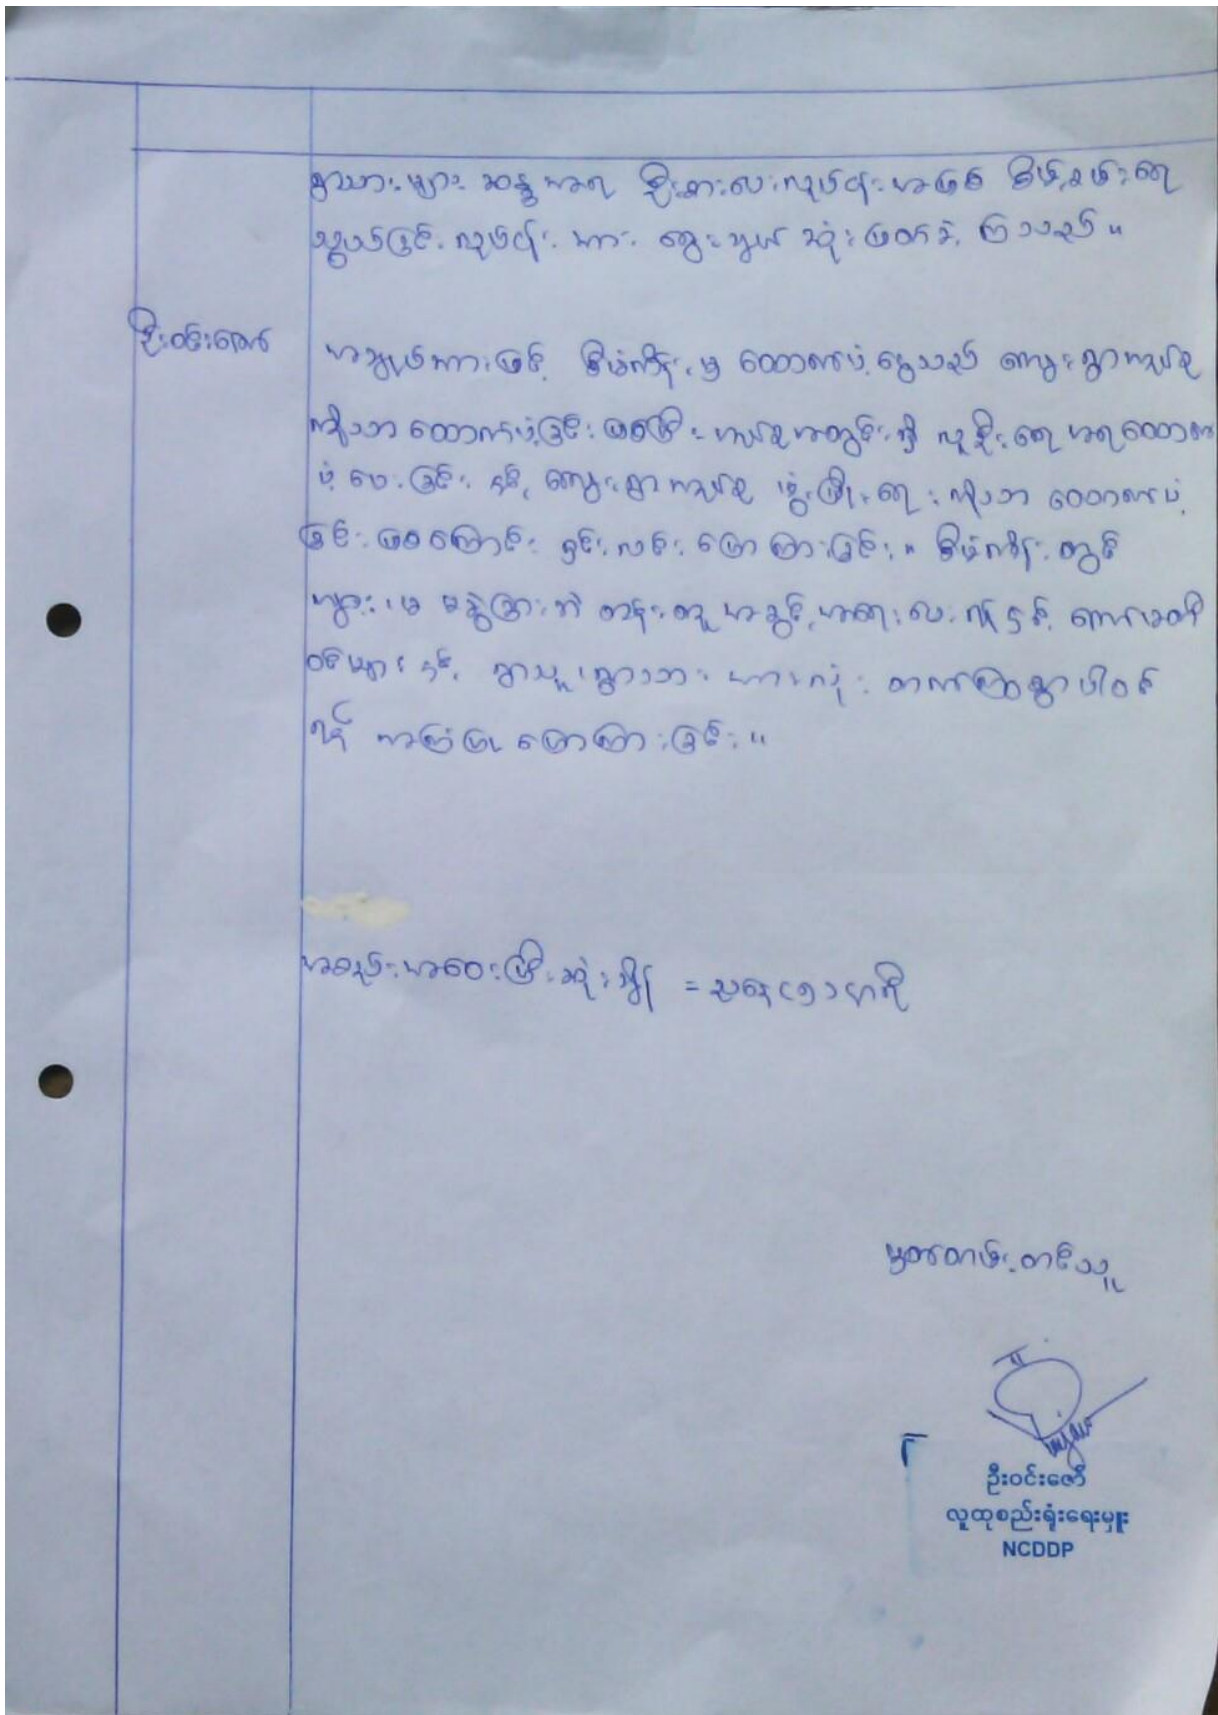 ရွာသားများ ဆန္ဒအရ ဦးစားပေးလုပ်ငန်းအဖြစ် စိမ့်စမ်းရေ
သွယ်ခြင်း လုပ်ငန်း အား ရွေးချယ် ဆုံးဖြတ်ခဲ့ ကြသည်။
ဦးဝင်းဇော် အချုပ်အားဖြင့် စီမံကိန်းမှ ထောက်ပံ့ငွေသည် ကျေးရွာအုပ်စု
ကိုသာ ထောက်ပံ့ခြင်းဖြစ်ပြီး အုပ်စုအတွင်းရှိ လူဦးရေ အရ ထောက်
ပံ့ပေးခြင်း နှင့် ကျေးရွာအုပ်စု ဖွံ့ဖြိုးရေး ကိုသာ ထောက်ပံ့
ခြင်း ဖြစ်ကြောင်း ရှင်းလင်း ပြောကြားခြင်း။ စီမံကိန်း တွင်
ကျား၊မ မခွဲခြားဘဲ တန်းတူ အခွင့်အရေးပေး ရန်နှင့် ကော်မတီ
ဝင်များ နှင့် ရွာသူ၊ရွာသား အားလုံး တက်ကြွစွာ ပါဝင်
ရန် အကြံပြု ပြောကြားခြင်း။
အစည်းအဝေးပြီးဆုံးချိန် = ညနေ
မှတ်တမ်းတင်သူ
ဦးဝင်းဇော်
လူထုစည်းရုံးရေးမှူး
NCDDP